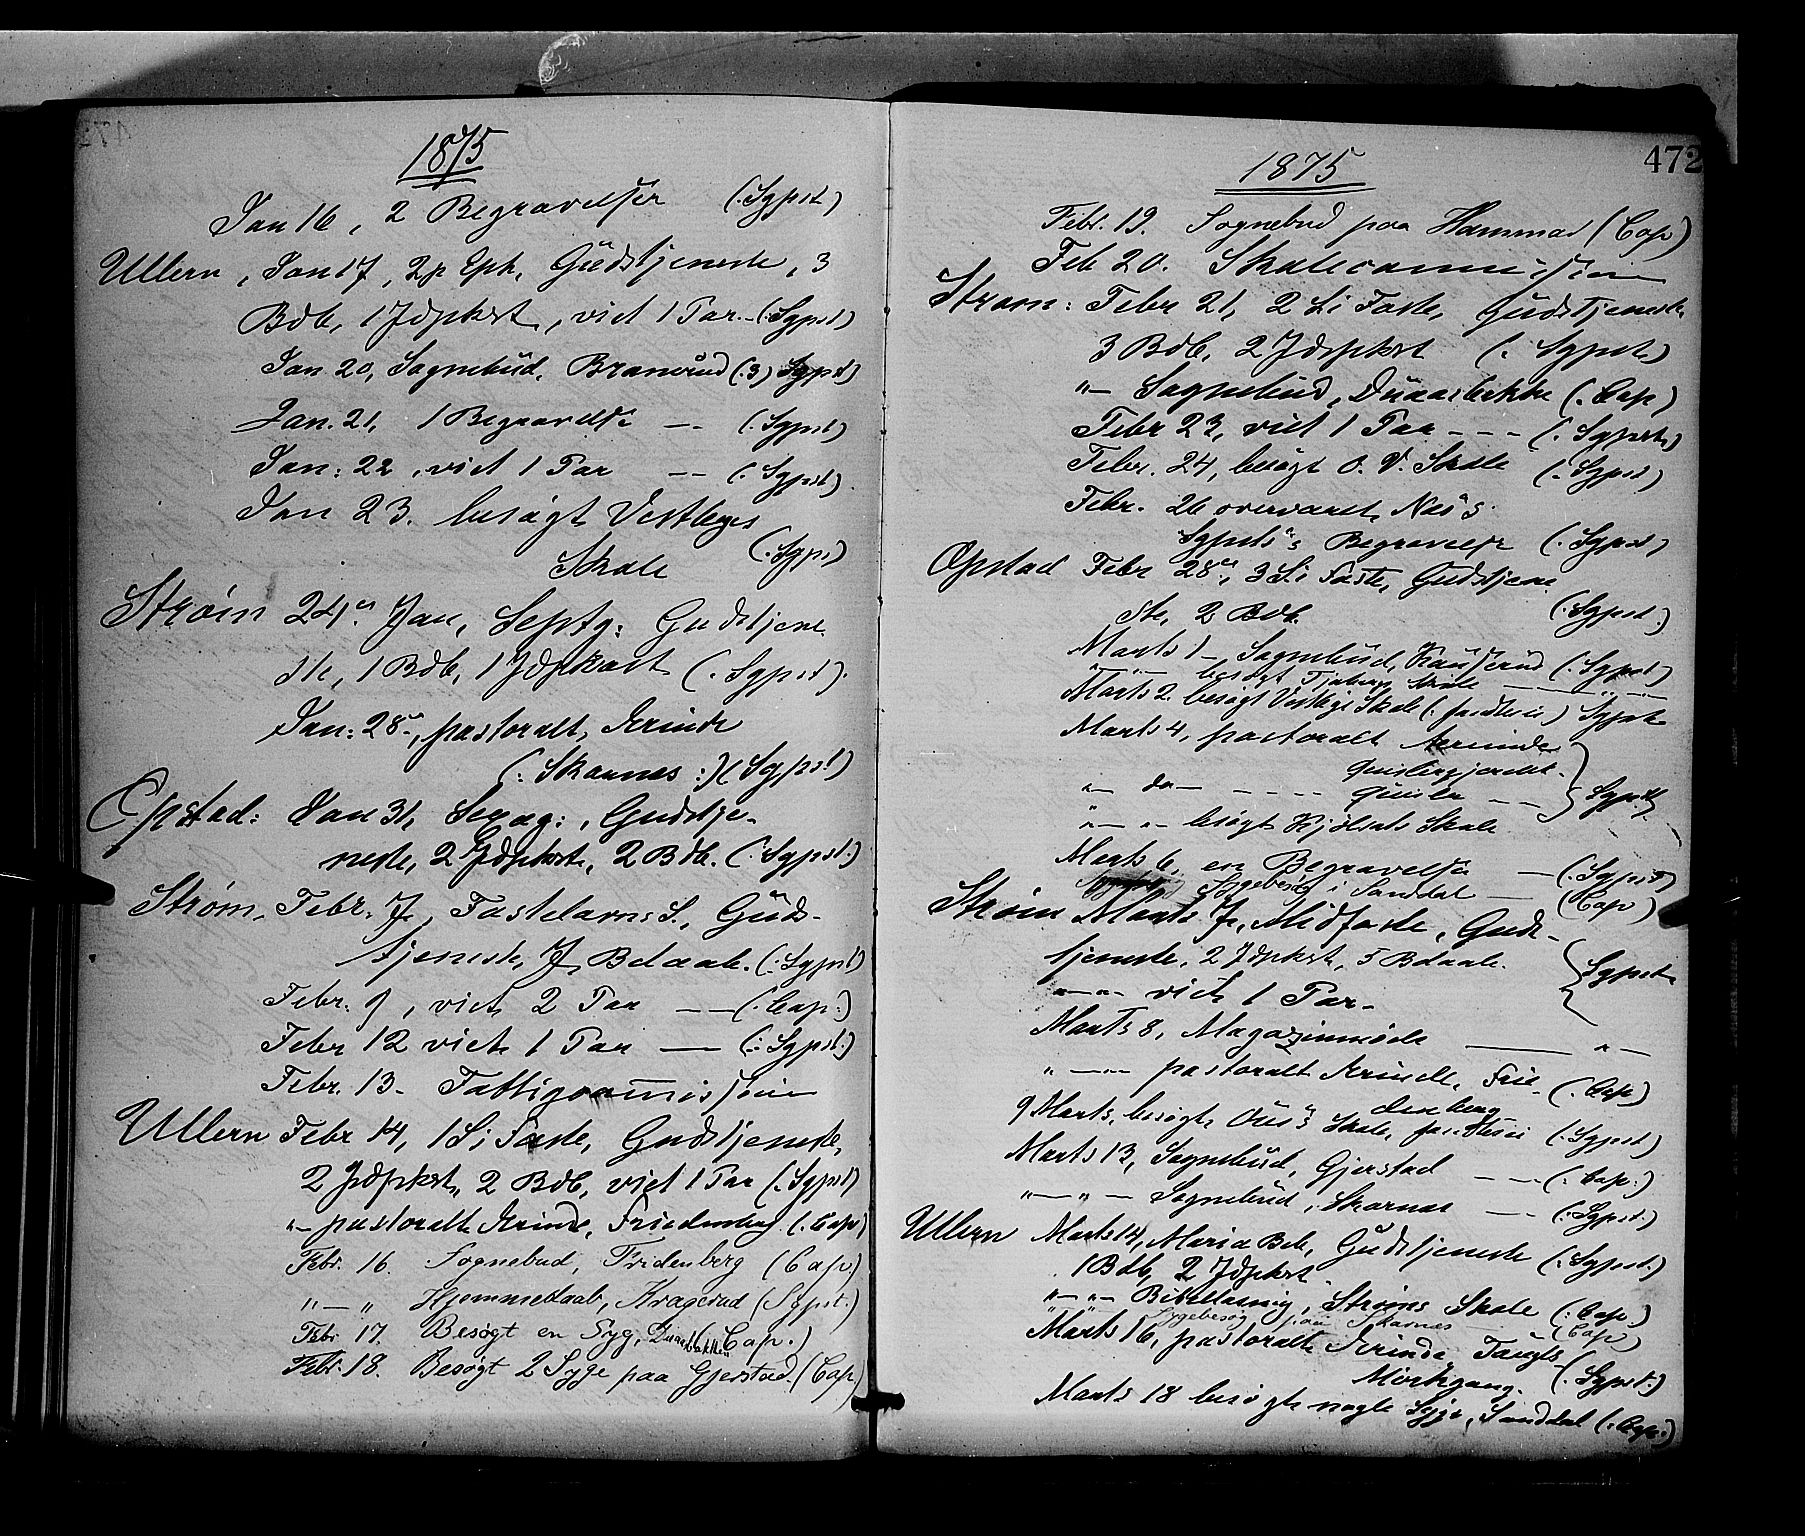 1875
Jan 16, 2 Begravelser (: Sgpst)
Ullern, Jan 17, 2 p Eph, Gudstjeneste, 3
Bdb, 1 Jdpkst, viet 1 Par - (: Sgpst)
Jan 20, Sognebud, Branerud (:3) Sgpst)
Jan. 21, 1 Begravelse — (: Sgpst)
Jan: 22, viet 1 Par — (: Sgpst)
Jan 23. besøgt Vestbyes
Skole (: Sgpst)
Strøm 24de Jan, Septg: Gudstjene
ste, 1 Bdb, 1 Jdpkast (: Sgpst).
Jan: 28de, pastoralt Ærinde
(: Skarnes :) (Sgpst)
Opstad: Jan 31, Sexag:, Gudstje-
neste, 2 Jdpkst, 2 Bdb. (: Sgpst:)
Strøm, Febr. 7, Fastelavns S, Guds-
tjeneste, 7 Bdaab. (: Sgpst)
Febr. 9, viet 2 Par — (: Cap:)
Febr 12 viet 1 Par — (: Sgpst:)
Febr. 13 - Fattigcommission
Ullern Febr 14, 1 S i Faste, Gudstjeneste,
2 Jdpkst, 2 Bdb, viet 1 Par (: Sgpst)
"- pastoralt Ærinde, Friedenberg (: Cap)
Febr. 16. Sognebud, Fridenberg (Cap)
" — " Hjemmedaab, Kragerud (Sgpst.)
Febr 17. Besøgt en Syg, Duaasbakken (Cap.)
Febr. 18. Besøgt 2 Syge paa Gjerstad. (Cap.)
1875
472
Febr. 19. Sognebud paa Hammad (Cap)
Feb 20. Skolecommission
Strøm: Febr 21, 2 S i Faste, Gudstjeneste
3 Bdb, 2 Jdpkst (: Sgpst)
"— Sognebud, Duaasbekke (: Cap)
Febr 23, viet 1 Par - - - (: Sgpst)
Febr. 24, besøgt O. V. Skole (: Sgpst)
Febr. 26 overværet Næs's
Sgpsts's Begravelse (: Sgpst)
Opstad Febr 28de, 3 S i Faste, Gudstjene
ste, 2 Bdb. (: Sgpst:)
Marts 1 - Sognebud, (: Sgpst)
besøgt Skole
Marts 2 besøgt Vestbyes Skole Sgpst
Marts 4, pastoralt Ærinde
"— do — - - - -
" — " - besøgt Kjølsets Skole } Sgpst
Marts 6, en Begravelse — (: Sgpst)
Sygebesøg i Sanddal — (Cap)
Strøm Marts 7, Midfaste, Guds-
tjeneste, 2 Jdpkst, 5 Bdaab. } Sgpst
"—"— viet 1 Par -
Marts 8, Magazinmøde — " —
" —"— pastoralt Ærinde, Frie- (: Cap)
denberg
9 Marts, besøgt Ous's Skole, (: Sgpst)
Marts 13, Sognebud, Gjerstad - - — (: Cap:)
"—"— Sognebud, Skarnes - - (: Sgpst:)
Ullern Marts 14, Maria Beb, Gudstjeneste (: Sgpst:)
1 Bdb, 2 Jdpkst
"—"— Bibellæsning, Strøms Skole (: Cap)
Sygebesøg paa Skarnes (Cap)
Marts 16, pastoralt Ærinde
Mørkgang. (: Sgpst:)
Marts 18 besøgt nogle Syge, Sanddal (: Cap.)